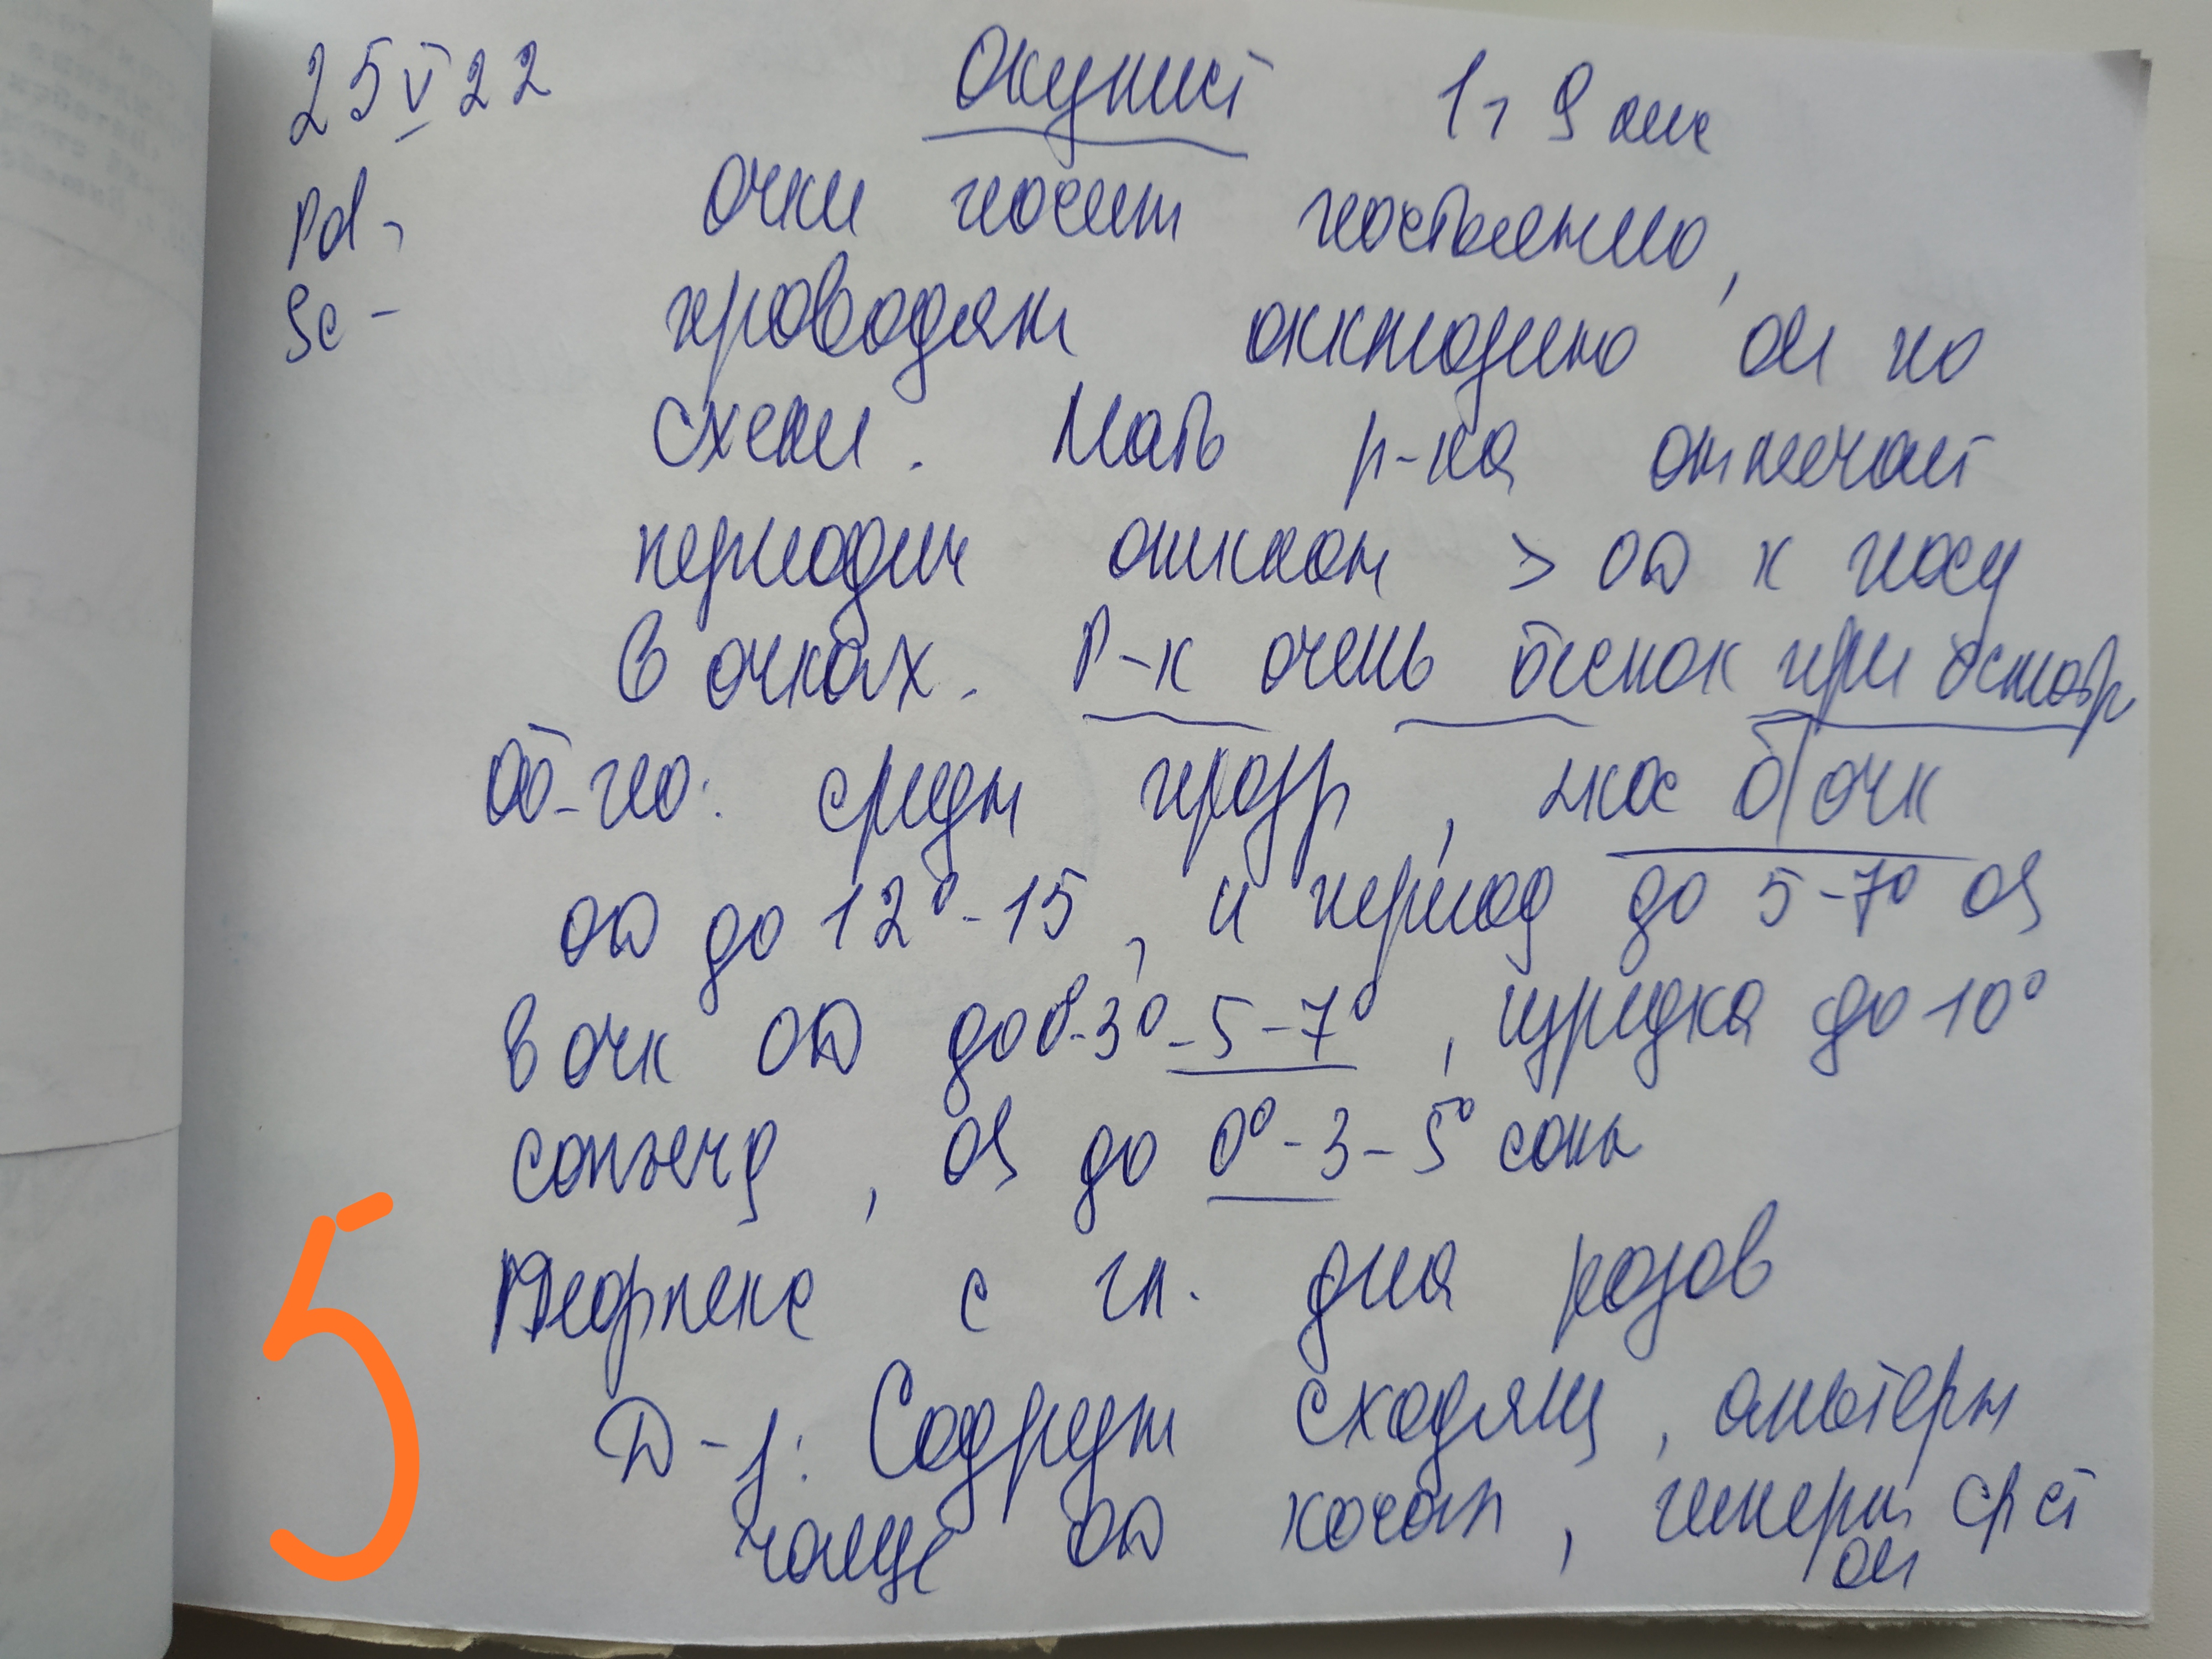 25 V 22 Окулист 1г 9 мес
Pd - очки носит постоянно,
Sc - проводят окклюзию ои по
схеме. Мать р-ка отмечает
периодич отклон > OD к носу
в очках. Р-к очень беспок при осмотр
Об-но: среды прозр, <кос б/очк
OD до 12°-15, и период до 5-7° OS
в очк OD до 0°-3°-5-7°, изредка до 10°
сопъенд, OS до 0°-3-5° соп
Рефлекс с гл. дна розов
D-з: Содруж сходящ, альтерн
чаще OD косогл, гиперм ср ст
ои
5